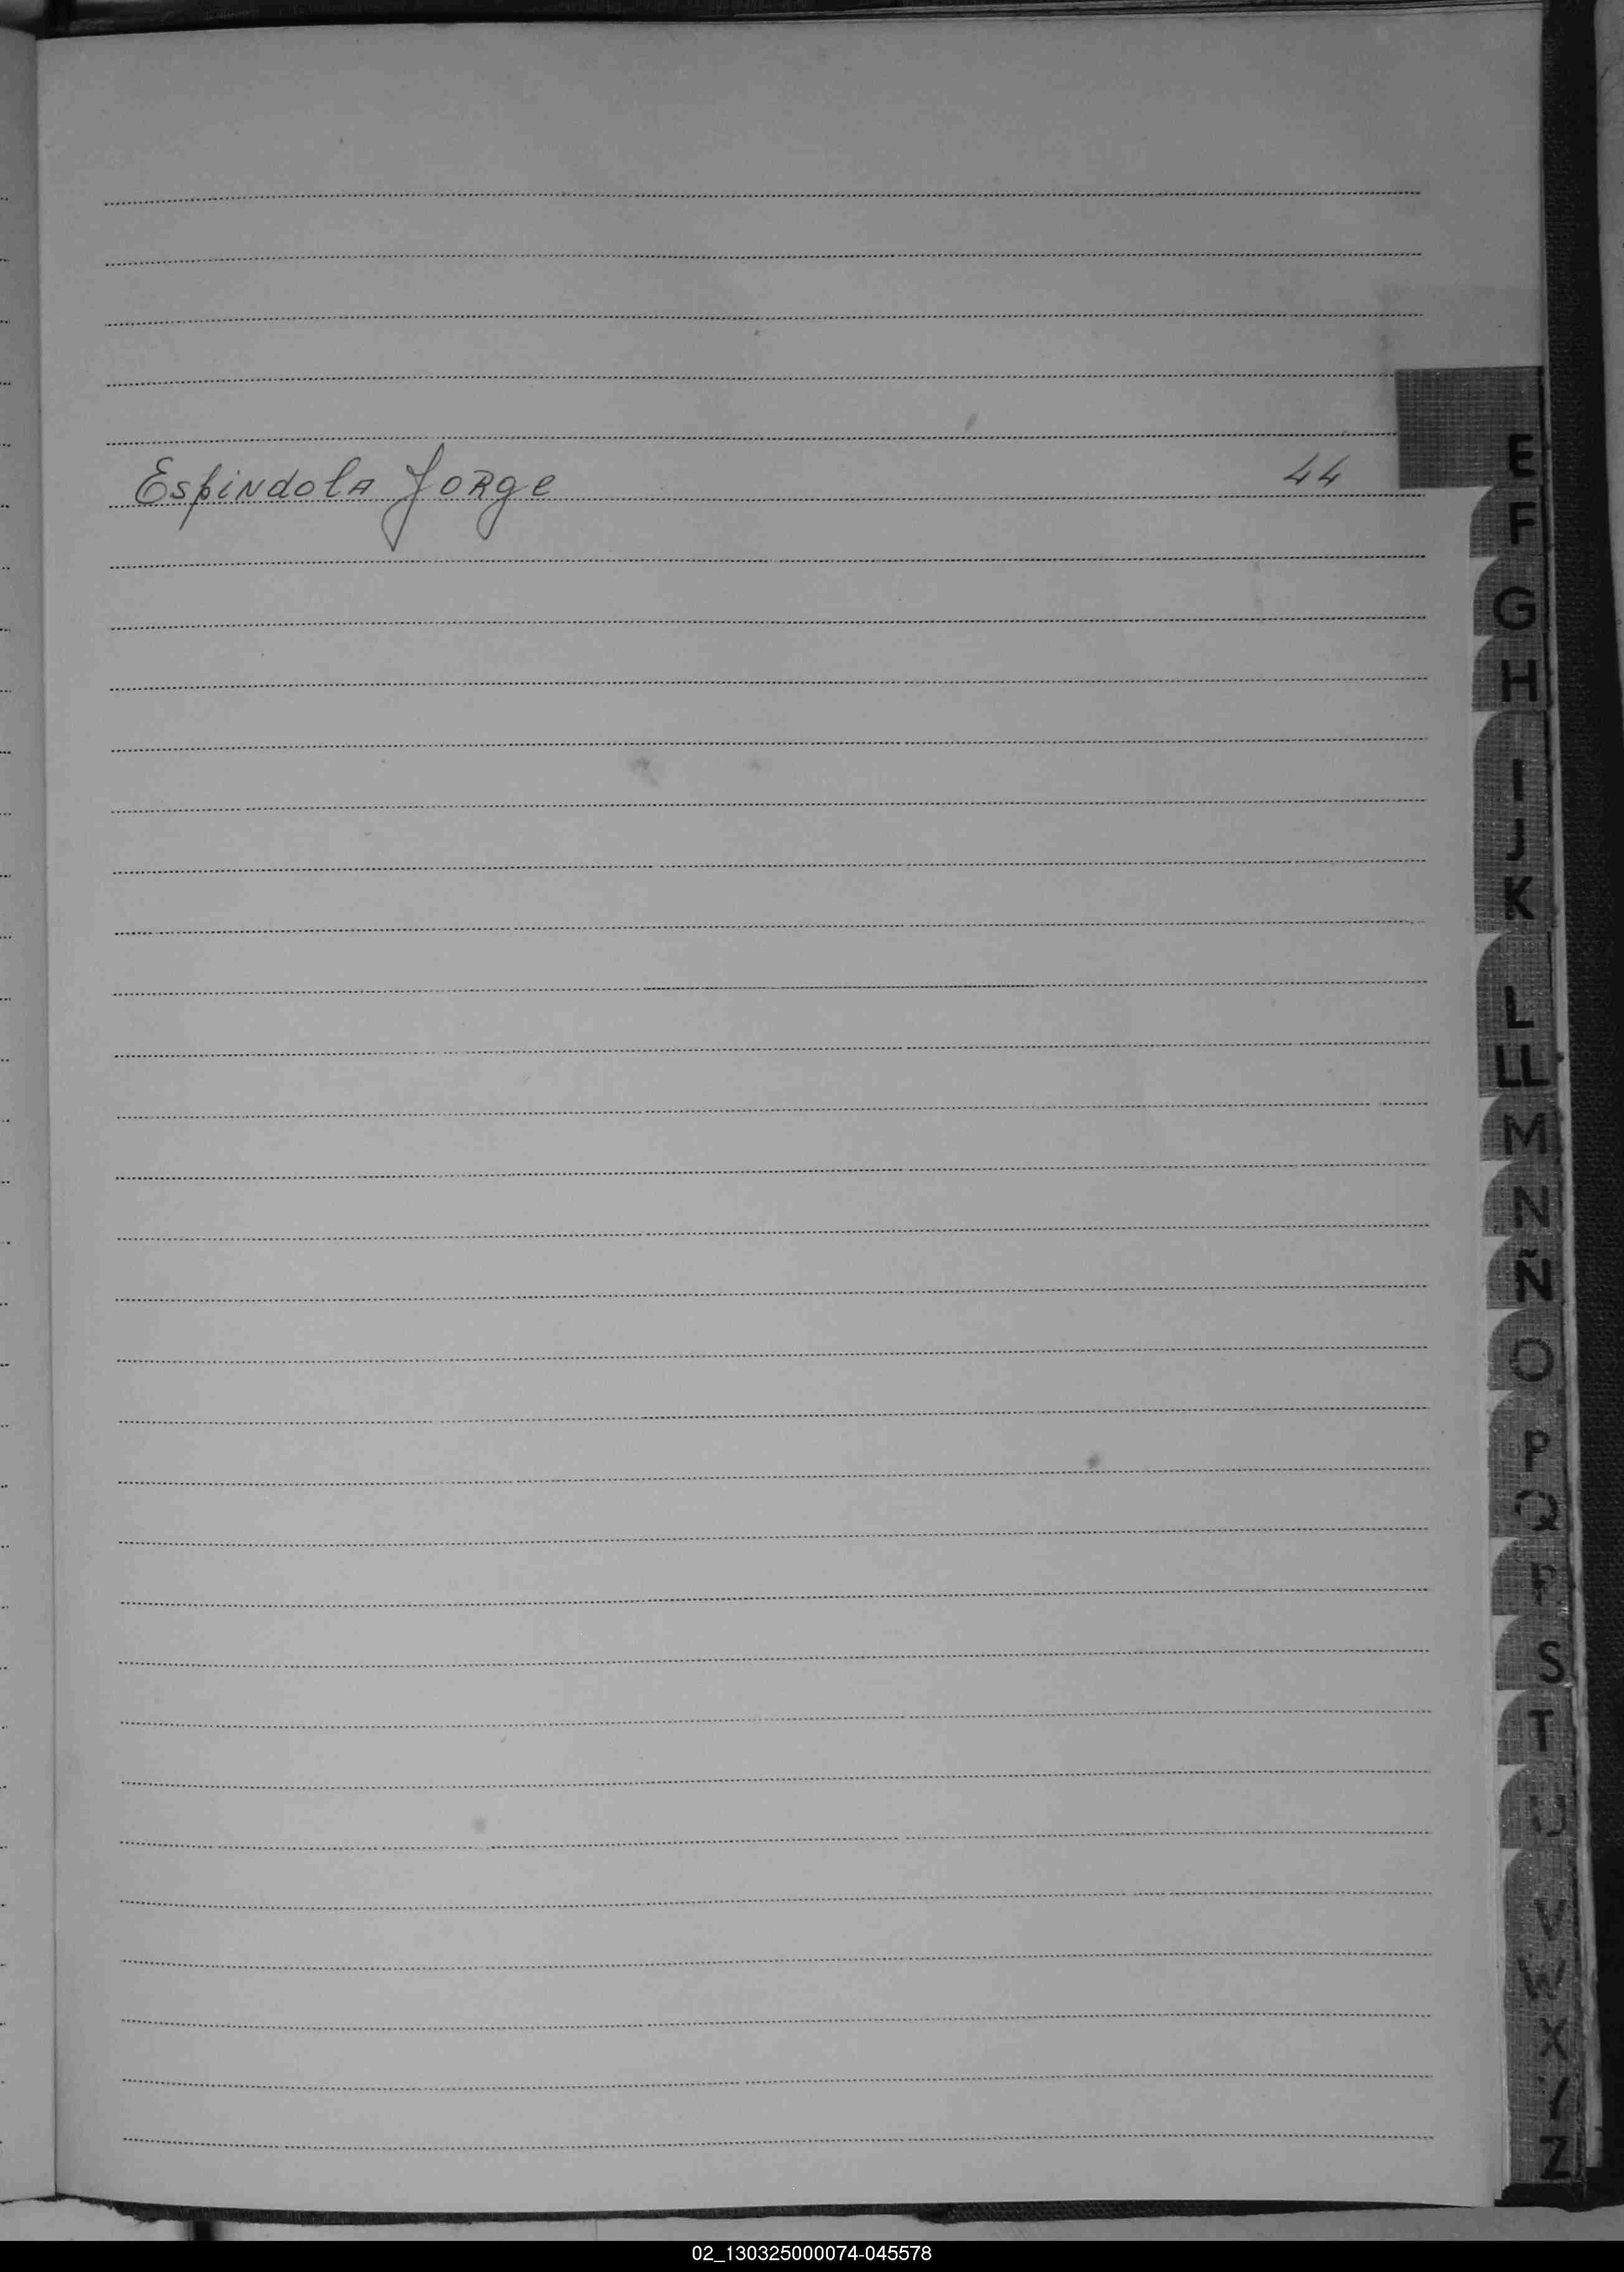 Espindola Jorge 44
E
F
G
H
I
J
K
L
LL
M
N
Ñ
O
P
Q
R
S
T
U
V
W
X
Y
Z
02_130325000074-045578